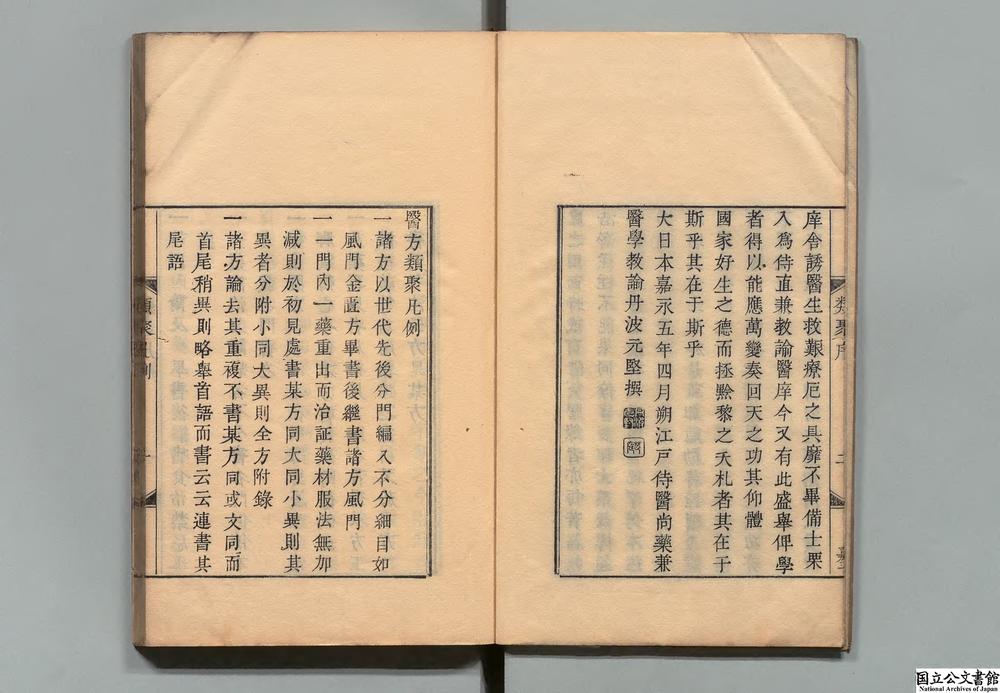 庠舍誘醫生救艱療厄之具靡不畢備士栗
入爲侍直兼教諭醫庠今又有此盛舉俾學
者得以能應萬變奏回天之功其仰體
國家好生之德而拯黔黎之夭札者其在于
斯乎其在于斯乎
大日本嘉永五年四月朔江戶侍醫尚藥兼
醫學教諭丹波元堅撰
醫方類聚凡例
一諸方以世代先後分門編入不分細目如
風門金匱方畢書後繼書諸方風門
一一門內一藥重出而治証藥材服法無加
減則於初見處書某方同大同小異則其
異者分附小同大異則全方附錄
一諸方論去其重複不書某方同或文同而
首尾稍異則略舉首語而書云云連書其
尾語
国立公文書館
National Archives of Japan